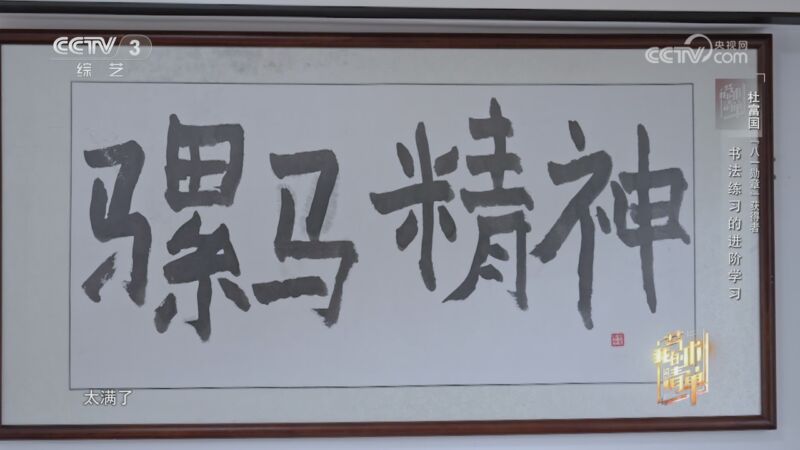 CCTV 3
综艺
央视网
CCTV.com
骡马精神
杜富国 「八一勋章」获得者
书法练习的进阶学习
太满了